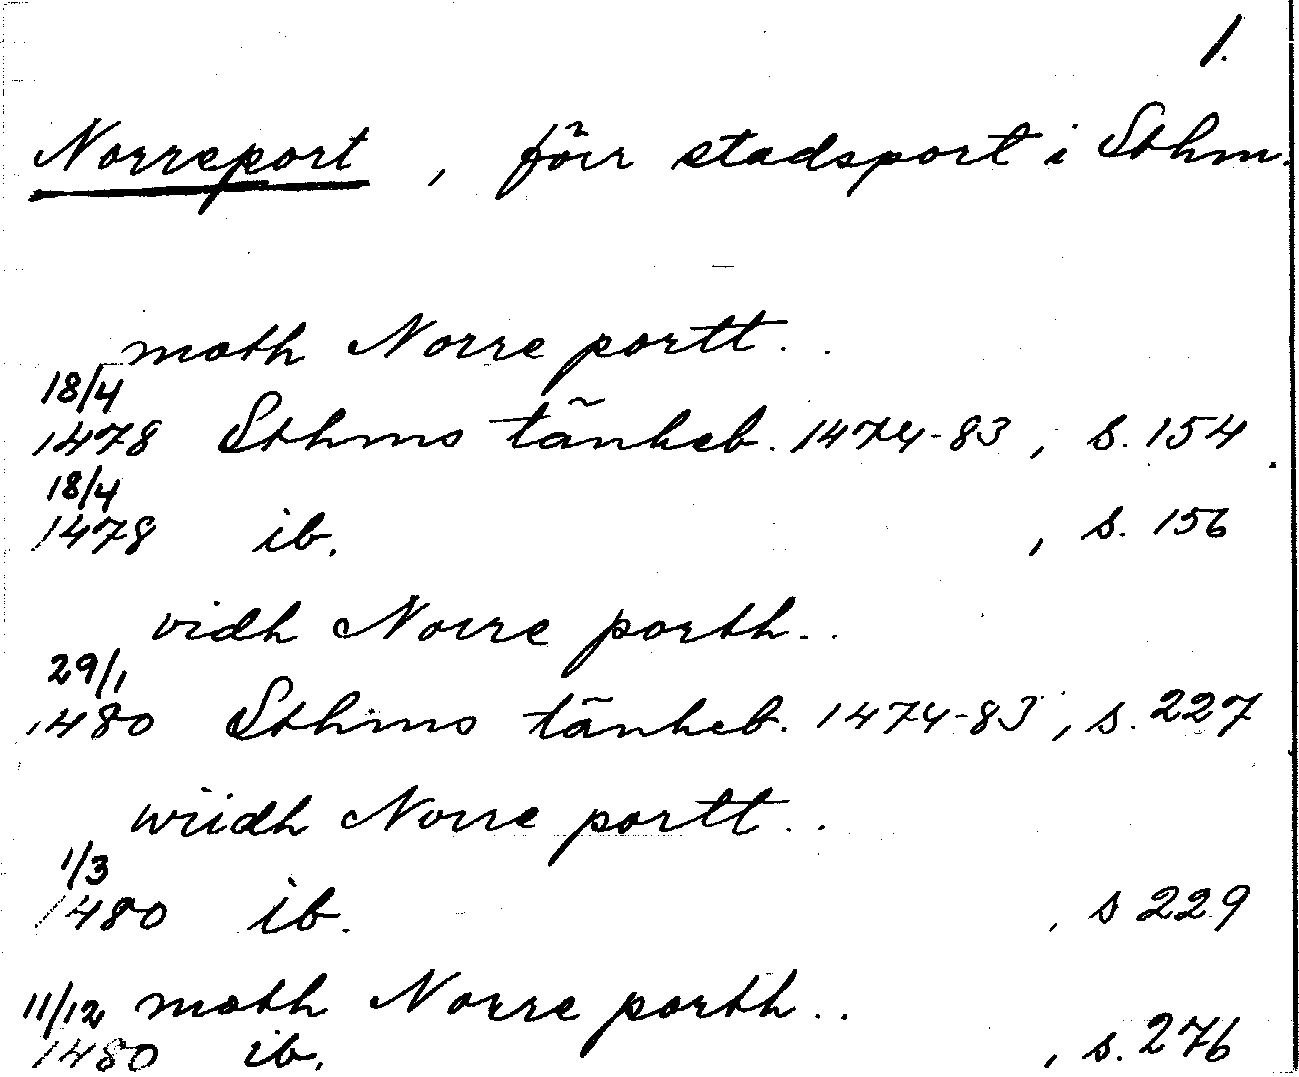 1.
Norreport, förr stadsport i Sthm.
moth Norre portt..
18/4
1478 Sthms tänkeb. 1474-83, s. 154
18/4
1478 ib., s. 156
vidh Norre porth..
29/1
1480 Sthms tänkeb. 1474-83, s. 227
wiidh Norre portt..
1/3
1480 ib., s 229
11/12 moth Norre porth..
1480 ib., s. 276